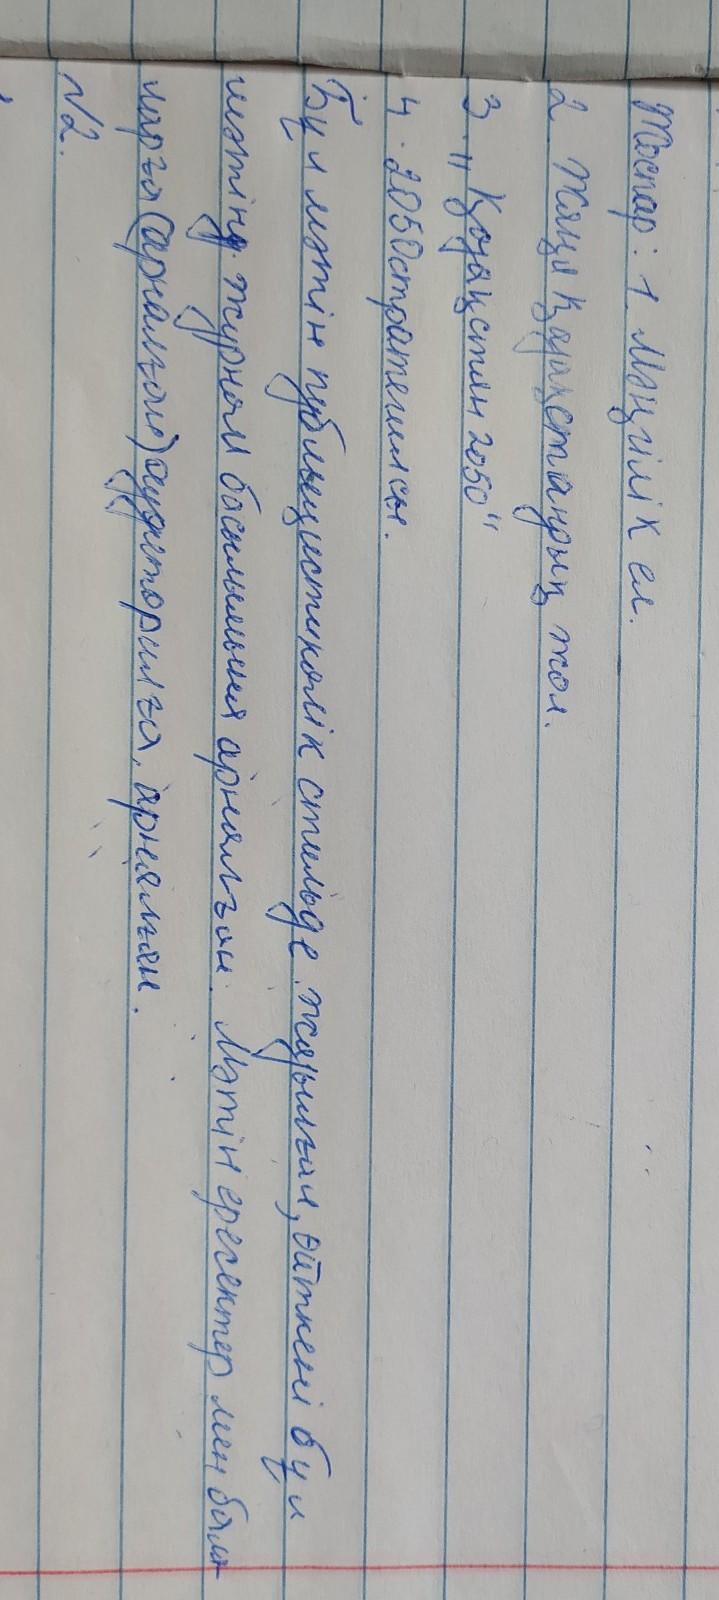 Жоспар: 1. Мәңгілік ел.
2 Жаңа Қазақстандық жол.
3. "Қазақстан 2050"
4. 2050 стратегиясы.
Бұл мәтін публицистикалік стильде жазылған, өйткені бұл
мәтінд журнал басылымына арналған. Мәтін ересектер мен бала-
ларға (арналған) аудиторияға, арналған.
№2.